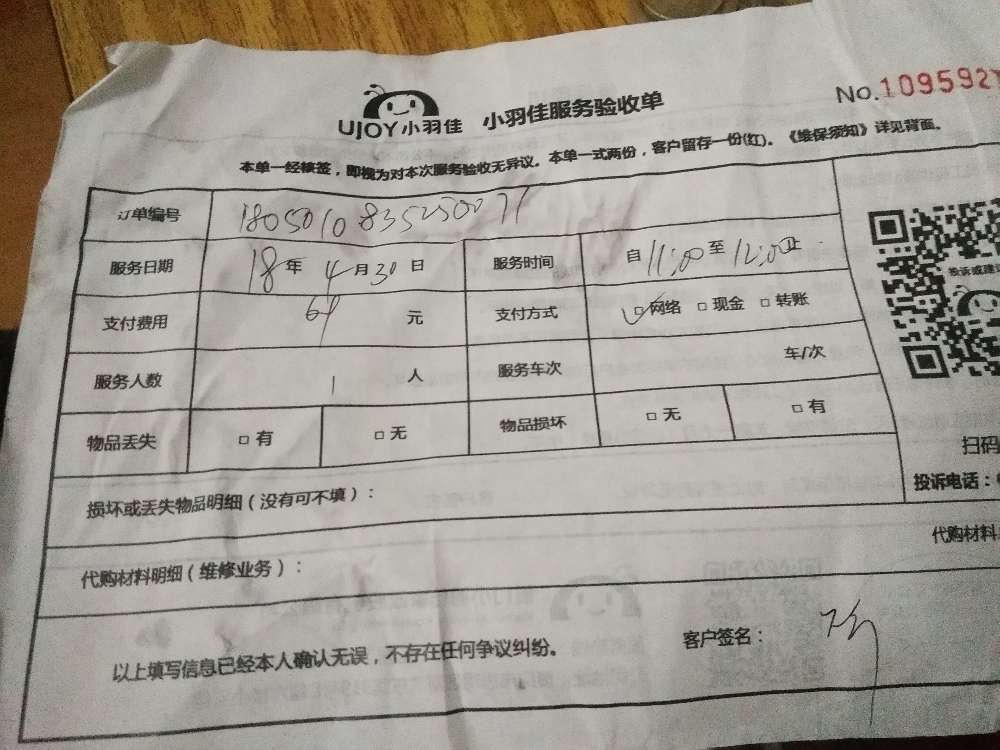 UJOY小羽佳 小羽佳服务验收单 No.109592
本单一经核签，即视为对本次服务验收无异议。本单一式两份，客户留存一份(红)。《维保须知》详见背面。
订单编号 18050108352500
服务日期 18年4月30日 服务时间 自11:00至12:00止
支付费用 64元 支付方式 □网络 □现金 □转账
服务人数 1人 服务车次 车/次
物品丢失 □有 □无 物品损坏 □无 □有
投诉或建
扫码
投诉电话：
损坏或丢失物品明细（没有可不填）：
代购材料明细（维修业务）： 代购材料
以上填写信息已经本人确认无误，不存在任何争议纠纷。 客户签名：